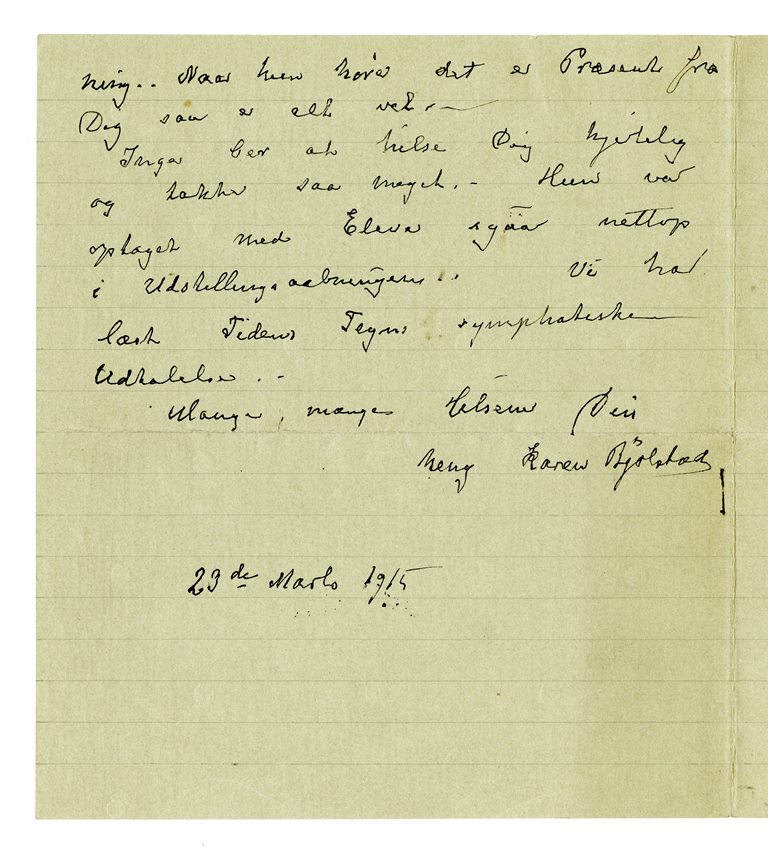 ning.. Naar hun hører det er Præsent fra
Dig saa er alt vel. —
Inga ber at hilse Dig hjertelig
og takke saa meget. - Hun var
optaget med Elever igaar nettop
i Udstillingsaabningen..  Vi har
læst Tidens Tegns symphatiske
Udtalelse. -
Mange, mange Hilsener Din
heng Karen Bjölstad
23de Marts 1915